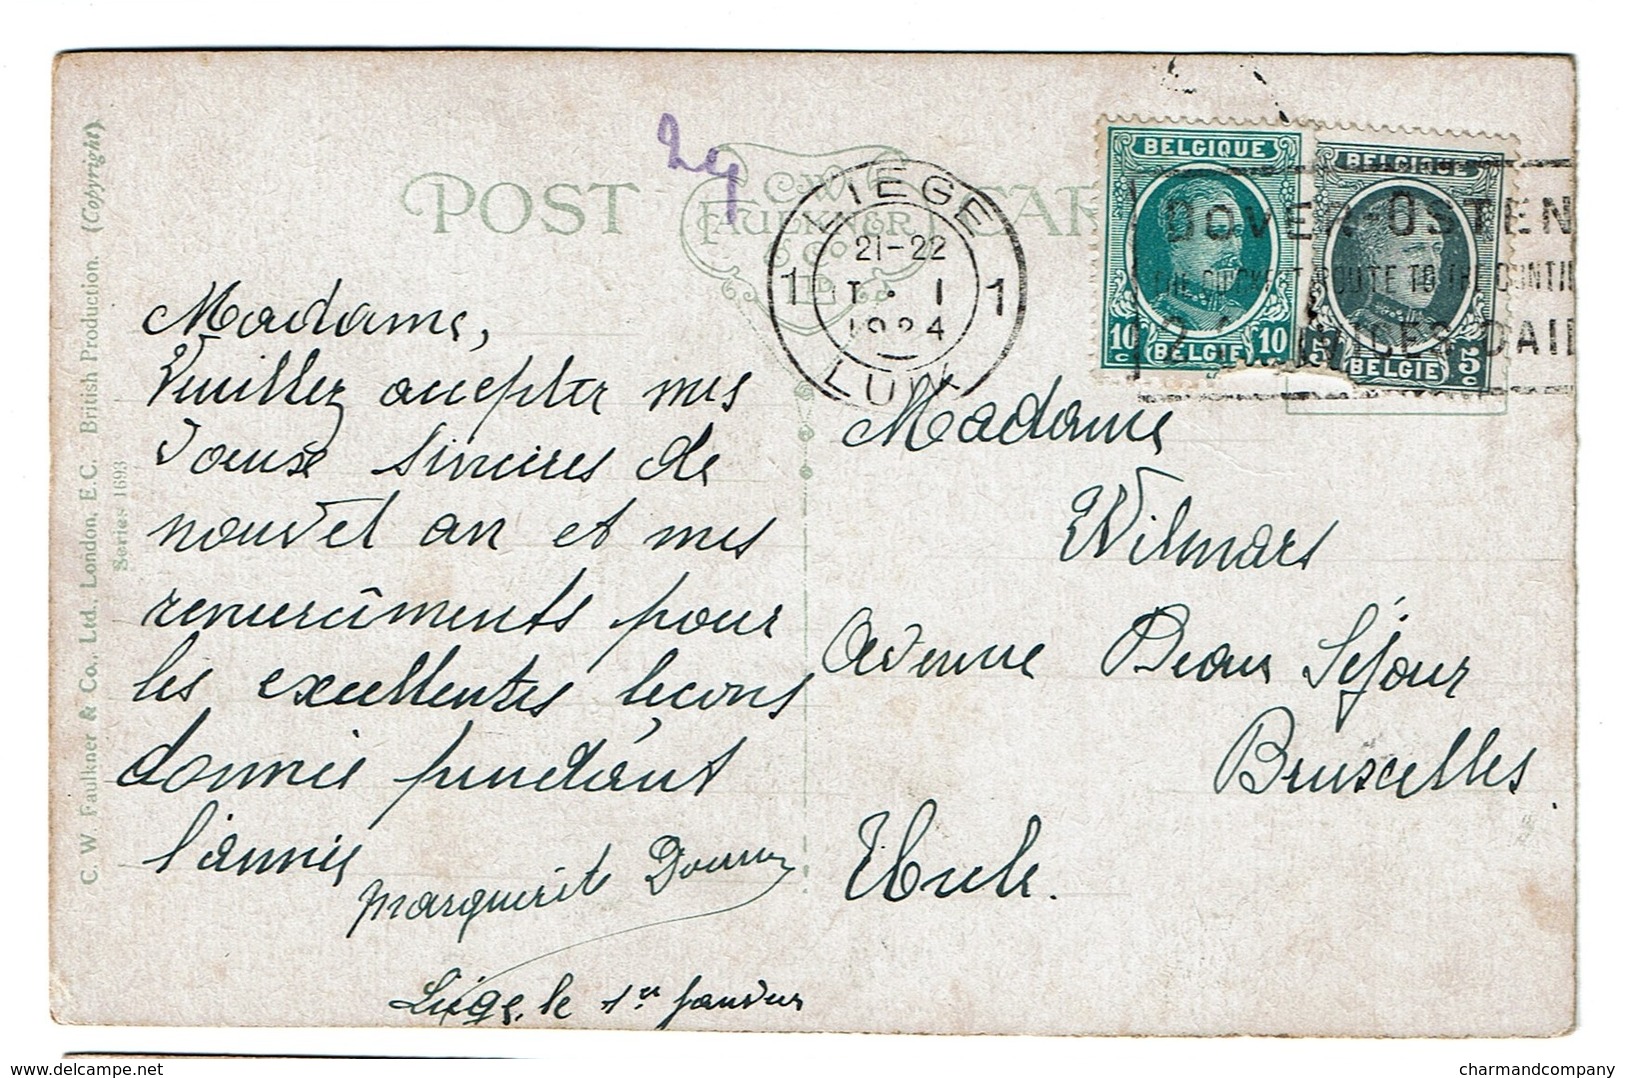 C. W. Faulkner & Co., Ltd., London, E.C. British Production. (Copyright)
Series 1693
POST CARD
C.W. FAULKNER & Co. LTD
24
LIEGE
21-22
1 I 1
1924
LUIK
BELGIQUE
10 c 10 c
BELGIE
BELGIQUE
5 5 c
BELGIE
DOVER-OSTEN
THE QUICKEST ROUTE TO THE CONTIN
SERVICES DAIL
Madame,
Veuillez accepter mes
voeux sincères de
nouvel an et mes
remercîments pour
les excellentes leçons
donnés pendant
l'année
Marguerite
Liège, le 1er Janvier
Madame
Wilmars
Avenue Beau Séjour
Bruxelles
Uccle.
delcampe.net
charmandcompany